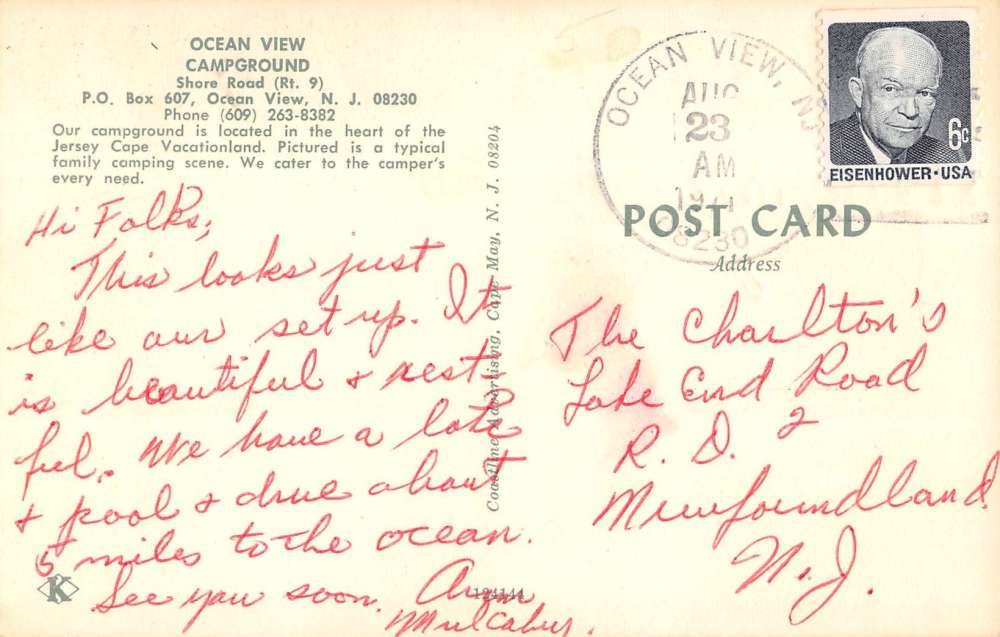 OCEAN VIEW
CAMPGROUND
Shore Road (Rt. 9)
P.O. Box 607, Ocean View, N. J. 08230
Phone (609) 263-8382
Our campground is located in the heart of the
Jersey Cape Vacationland. Pictured is a typical
family camping scene. We cater to the camper's
every need.
Hi Folks,
This looks just
like our set up. It
is beautiful & rest
ful. We have a lake
& pool & drive about
5 miles to the ocean.
See you soon.
Mulcahy.
K
Coastline Advertising, Cape May, N. J. 08204
124144
OCEAN VIEW, NJ
AUG
23
AM
08230
6c
EISENHOWER • USA
POST CARD
Address
The Charlton's
Lake End Road
R. D. 2
Newfoundland
N. J.